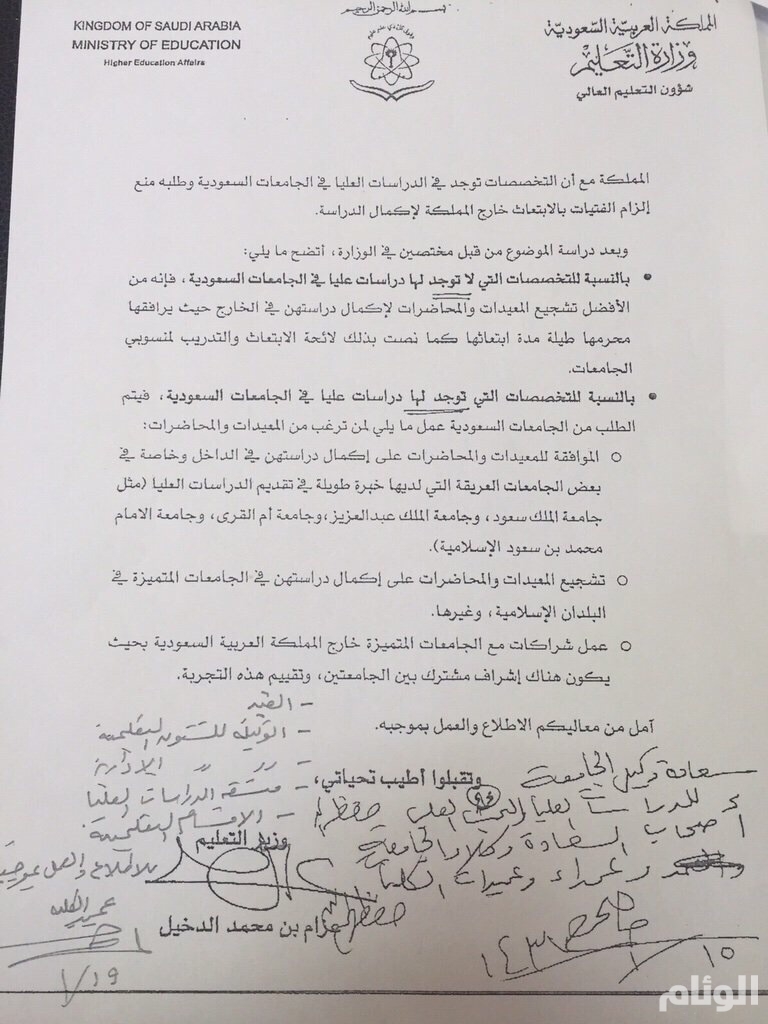 بسم الله الرحمن الرحيم
KINGDOM OF SAUDI ARABIA
MINISTRY OF EDUCATION
Higher Education Affairs
المملكة العربية السعودية
وزارة التعليم
شؤون التعليم العالي
المملكة مع أن التخصصات توجد في الدراسات العليا في الجامعات السعودية وطلبه منع
إلزام الفتيات بالابتعاث خارج المملكة لإكمال الدراسة.
وبعد دراسة الموضوع من قبل مختصين في الوزارة، أتضح ما يلي:
• بالنسبة للتخصصات التي لا توجد لها دراسات عليا في الجامعات السعودية، فإنه من
الأفضل تشجيع المعيدات والمحاضرات لإكمال دراستهن في الخارج حيث يرافقها
محرمها طيلة مدة ابتعاثها كما نصت بذلك لائحة الابتعاث والتدريب لمنسوبي
الجامعات.
• بالنسبة للتخصصات التي توجد لها دراسات عليا في الجامعات السعودية، فيتم
الطلب من الجامعات السعودية عمل ما يلي لمن ترغب من المعيدات والمحاضرات:
o الموافقة للمعيدات والمحاضرات على إكمال دراستهن في الداخل وخاصة في
بعض الجامعات العريقة التي لديها خبرة طويلة في تقديم الدراسات العليا (مثل
جامعة الملك سعود، وجامعة الملك عبدالعزيز، وجامعة أم القرى، وجامعة الامام
محمد بن سعود الإسلامية).
o تشجيع المعيدات والمحاضرات على إكمال دراستهن في الجامعات المتميزة في
البلدان الإسلامية، وغيرها.
o عمل شراكات مع الجامعات المتميزة خارج المملكة العربية السعودية بحيث
يكون هناك إشراف مشترك بين الجامعتين، وتقييم هذه التجربة.
آمل من معاليكم الاطلاع والعمل بموجبه.
وتقبلوا أطيب تحياتي،
وزير التعليم
عزام بن محمد الدخيل
سعادة وكيل الجامعة
للدراسات العليا والبحث العلمي حفظه الله
أصحاب السعادة وكلاء الجامعة
وعمداء وعميدات الكليات
حفظهم الله
١٤٣٧/١/١٥
- الوكيلة للشئون التعليمية
- " " الإدارية
- منسقة الدراسات العليا
- الأقسام التعليمية
للاطلاع والعمل بموجبه
عميد الكلية
١/١٩
الوئام